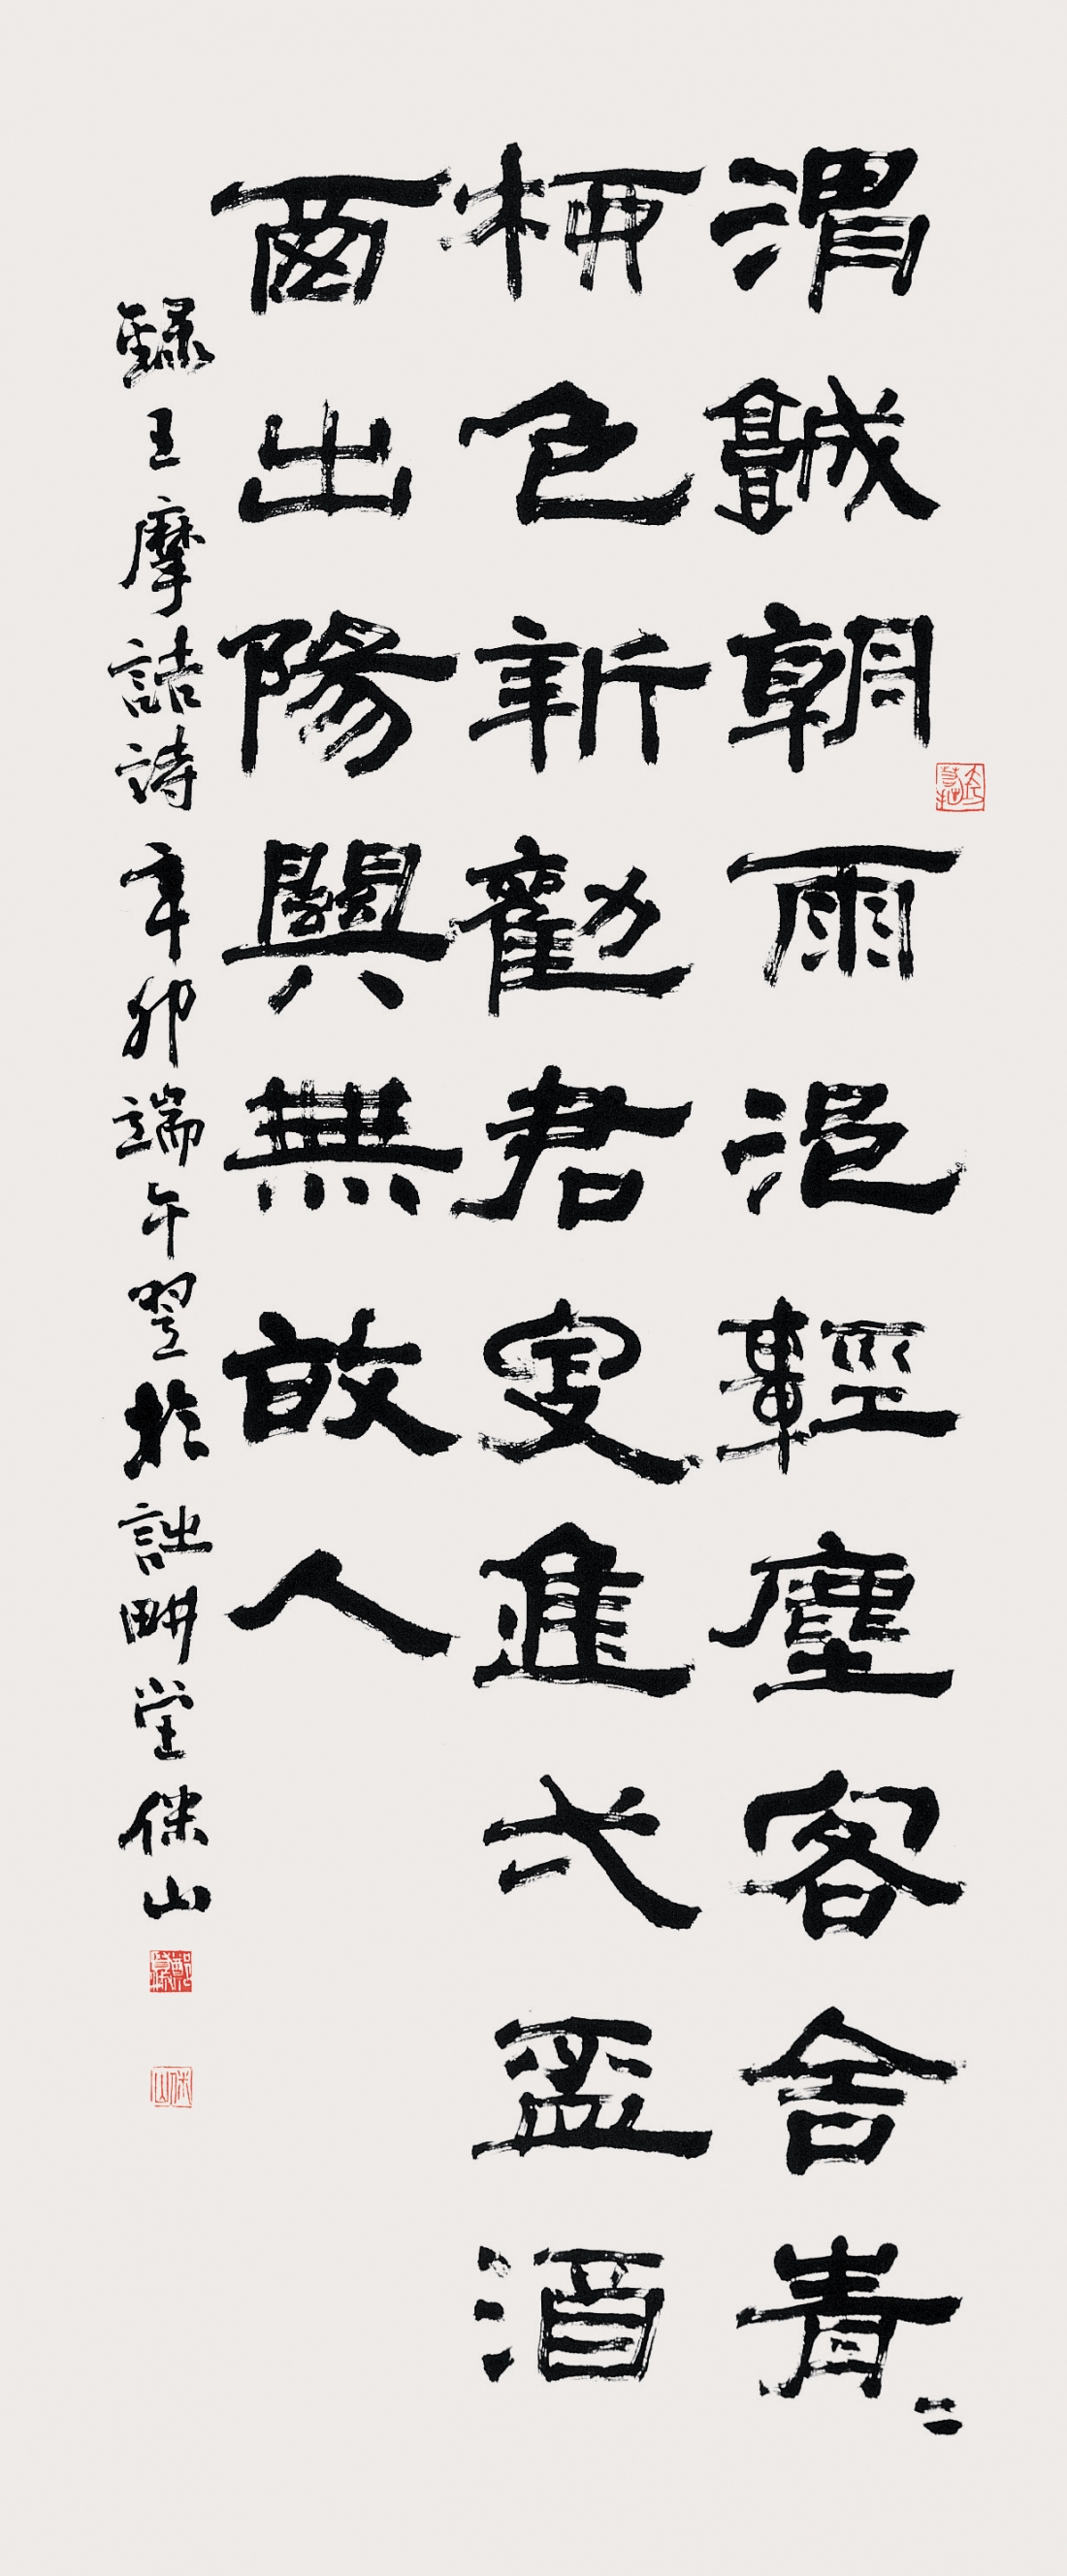 渭城朝雨浥輕塵客舍青〻
桺色新勸君更進弌盃酒
西出陽關無故人
録王摩詰詩辛卯端午翌於詘畊堂保山
保山